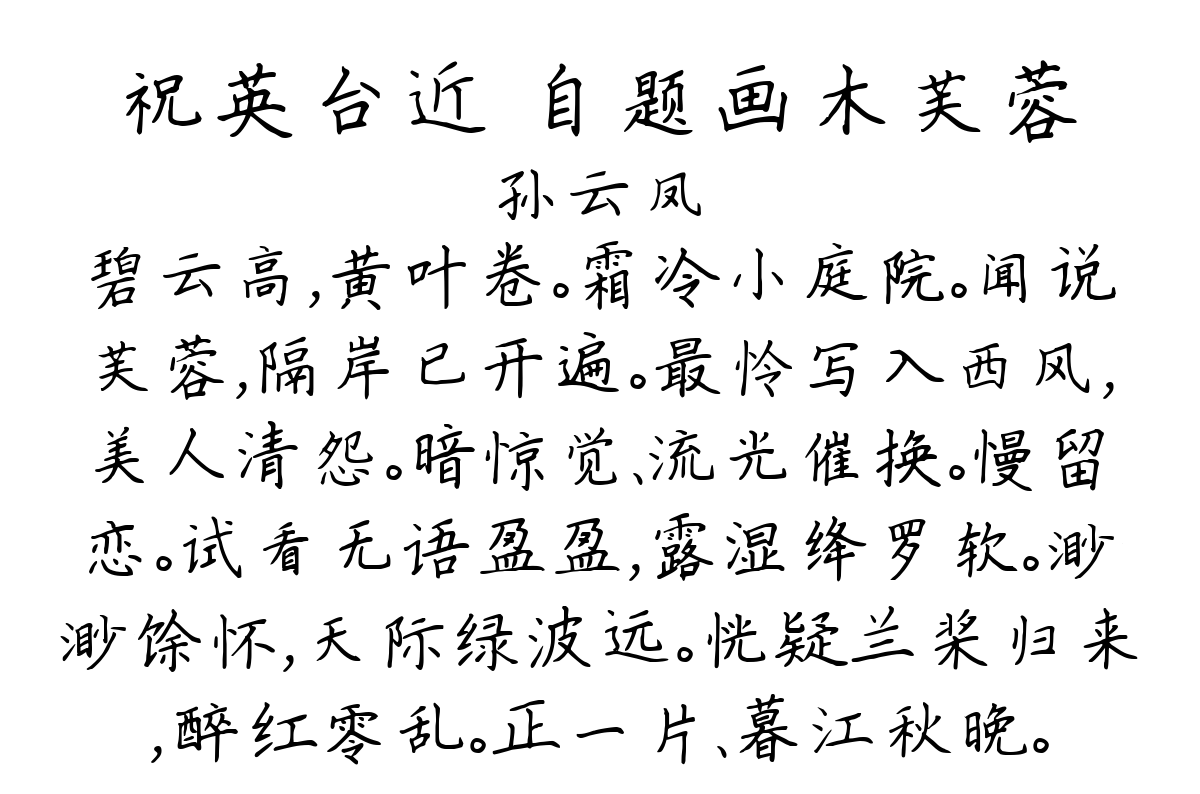 祝英台近 自题画木芙蓉
孙云凤
碧云高,黄叶卷。霜冷小庭院。闻说
芙蓉,隔岸已开遍。最怜写入西风,
美人清怨。暗惊觉、流光催换。慢留
恋。试看无语盈盈,露湿绛罗软。渺
渺馀怀,天际绿波远。恍疑兰桨归来
,醉红零乱。正一片、暮江秋晚。